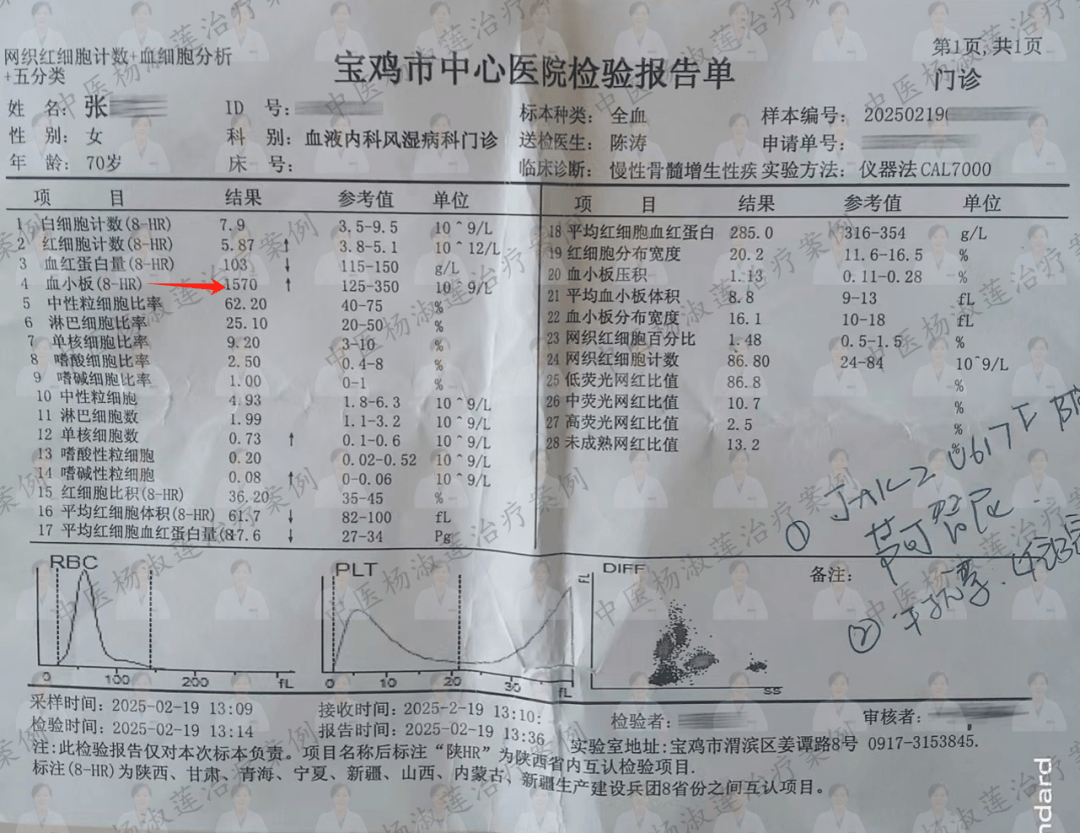 网织红细胞计数+血细胞分析
+五分类
宝鸡市中心医院检验报告单
第1页,共1页
门诊
姓 名: 张 ID 号: 标本种类: 全血 样本编号: 20250219
性 别: 女 科 别: 血液内科风湿病科门诊 送检医生: 陈涛 申请单号:
年 龄: 70岁 床 号: 临床诊断: 慢性骨髓增生性疾 实验方法: 仪器法CAL7000
项 目 结果 参考值 单位
1 白细胞计数(8-HR) 7.9 3.5-9.5 10^9/L
2 红细胞计数(8-HR) 5.87 ↑ 3.8-5.1 10^12/L
3 血红蛋白量(8-HR) 103 ↓ 115-150 g/L
4 血小板(8-HR) 1570 ↑ 125-350 10^9/L
5 中性粒细胞比率 62.20 40-75 %
6 淋巴细胞比率 25.10 20-50 %
7 单核细胞比率 9.20 3-10 %
8 嗜酸细胞比率 2.50 0.4-8 %
9 嗜碱细胞比率 1.00 0-1 %
10 中性粒细胞 4.93 1.8-6.3 10^9/L
11 淋巴细胞数 1.99 1.1-3.2 10^9/L
12 单核细胞数 0.73 ↑ 0.1-0.6 10^9/L
13 嗜酸性粒细胞 0.20 0.02-0.52 10^9/L
14 嗜碱性粒细胞 0.08 ↑ 0-0.06 10^9/L
15 红细胞比积(8-HR) 36.20 35-45 %
16 平均红细胞体积(8-HR) 61.7 ↓ 82-100 fL
17 平均红细胞血红蛋白量(8 17.6 ↓ 27-34 Pg
项 目 结果 参考值 单位
18 平均红细胞血红蛋白 285.0 316-354 g/L
19 红细胞分布宽度 20.2 11.6-16.5 %
20 血小板压积 1.13 0.11-0.28 %
21 平均血小板体积 8.8 9-13 fL
22 血小板分布宽度 16.1 10-18 fL
23 网织红细胞百分比 1.48 0.5-1.5 %
24 网织红细胞计数 86.80 24-84 10^9/L
25 低荧光网红比值 86.8 %
26 中荧光网红比值 10.7 %
27 高荧光网红比值 2.5 %
28 未成熟网红比值 13.2 %
① JAK2 V617F
②
备注:
RBC
0 100 200 fL
PLT
0 10 20 30 fL
DIFF
FL
SS
采样时间: 2025-02-19 13:09 接收时间: 2025-2-19 13:10:
检验时间: 2025-02-19 13:14 报告时间: 2025-02-19 13:36
检验者: 审核者:
注:此检验报告仅对本次标本负责。项目名称后标注“陕HR”为陕西省内互认检验项目.
实验室地址:宝鸡市渭滨区姜谭路8号 0917-3153845.
标注(8-HR)为陕西、甘肃、青海、宁夏、新疆、山西、内蒙古、新疆生产建设兵团8省份之间互认项目。
ndard
中医杨淑莲治疗案例